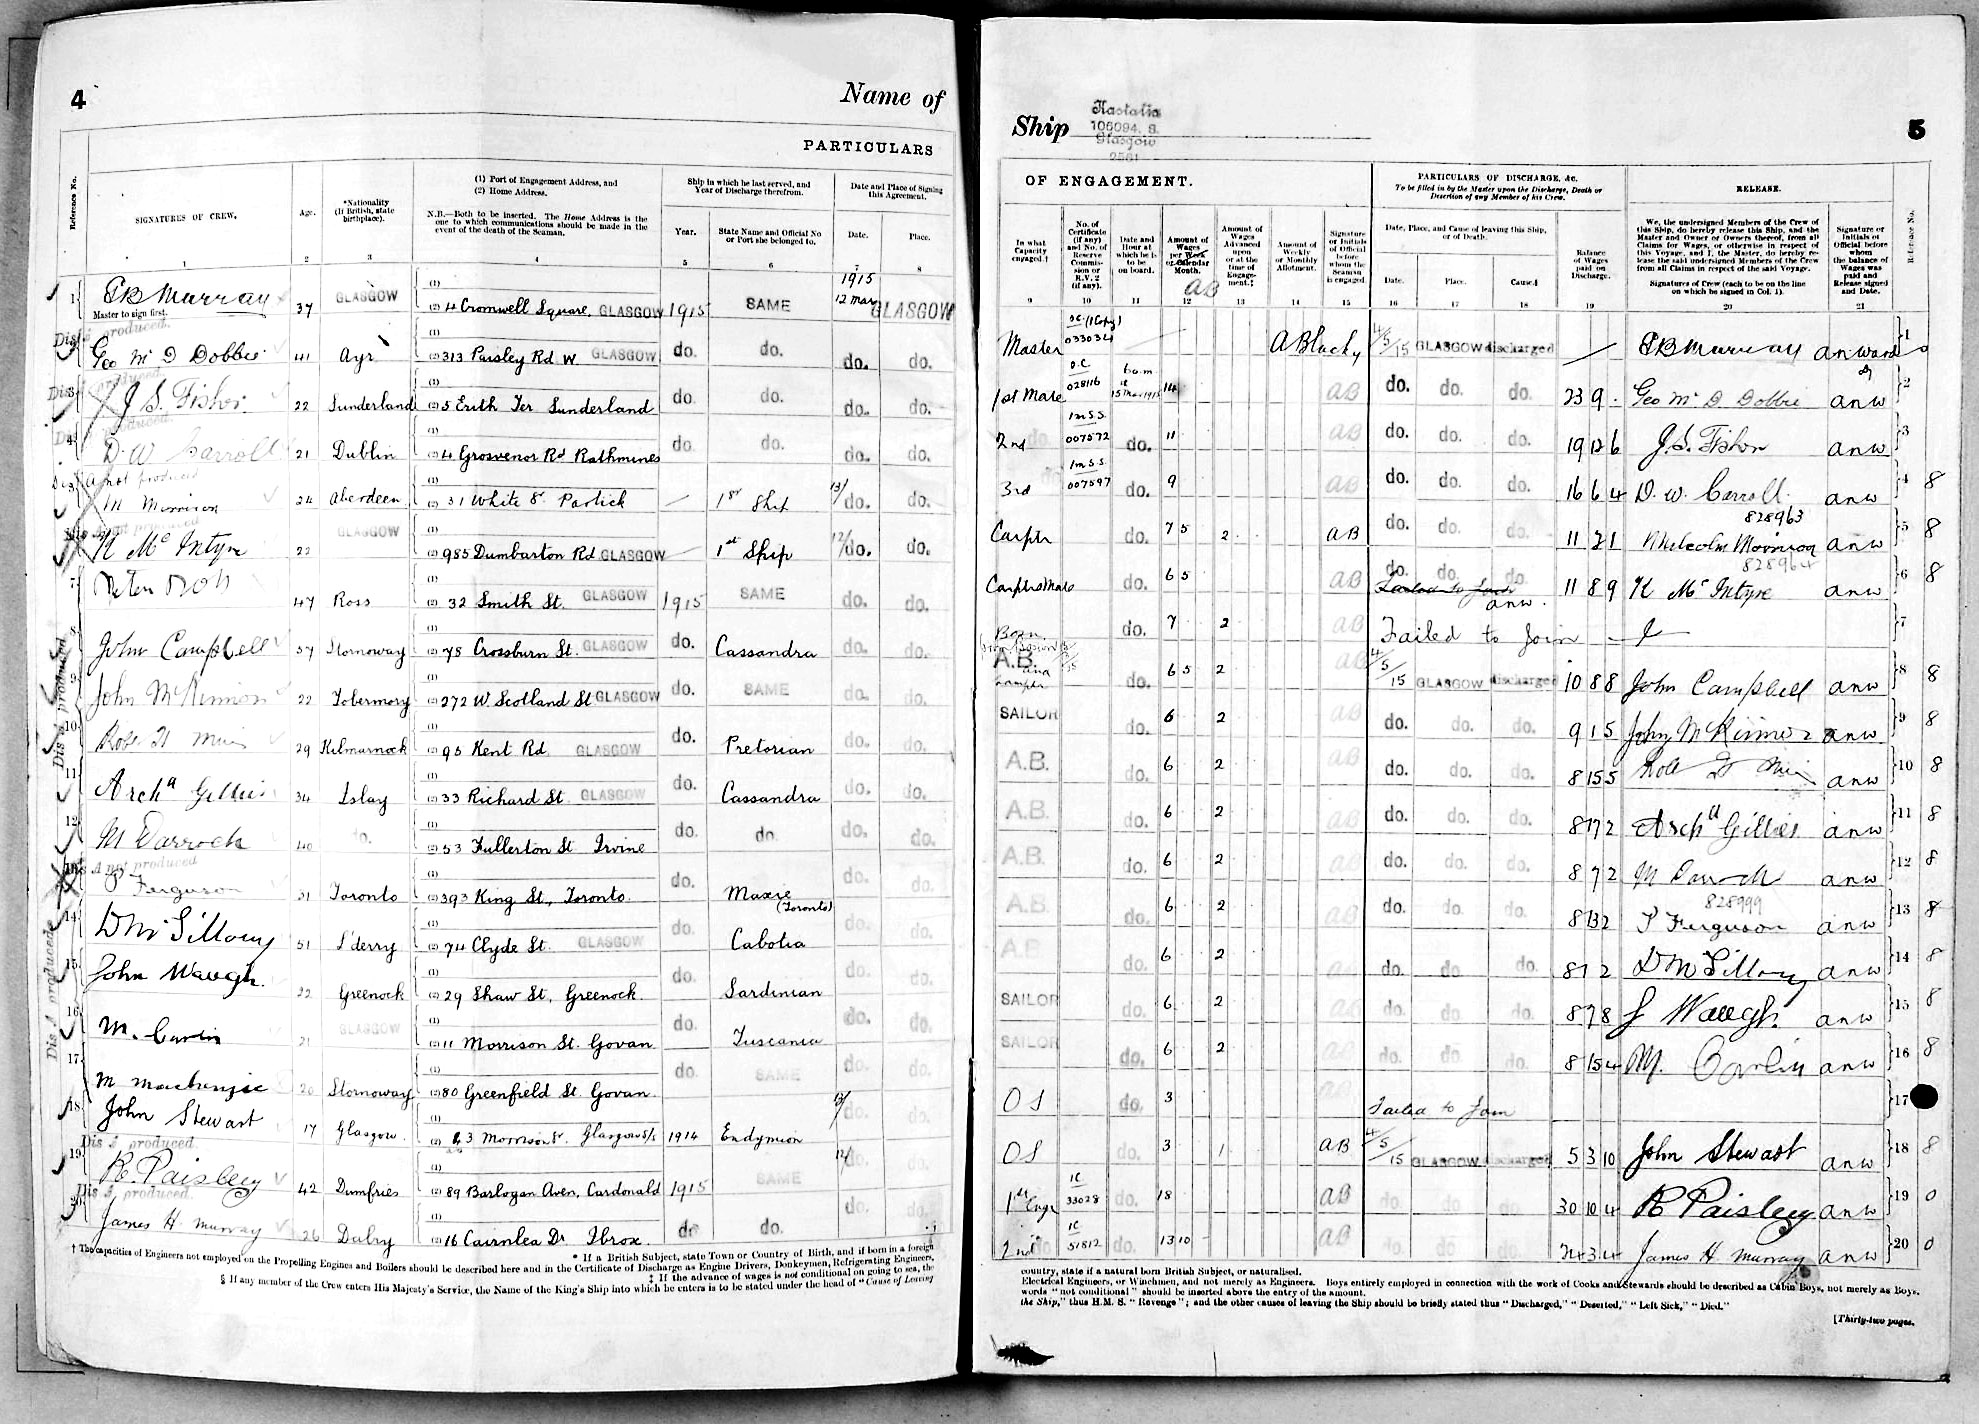 4
Name of
PARTICULARS
Reference No.
SIGNATURES OF CREW.
Age.
*Nationality (If British, state birthplace).
(1) Port of Engagement Address, and
(2) Home Address.
N.B.—Both to be inserted. The Home Address is the one to which communications should be made in the event of the death of the Seaman.
Ship in which he last served, and Year of Discharge therefrom.
Year.
State Name and Official No or Port she belonged to.
Date and Place of Signing this Agreement.
Date.
Place.
1 2 3 4 5 6 7 8
1 Master to sign first. 37 GLASGOW (1) (2) 4 Cromwell Square, GLASGOW 1915 SAME 1915 12 Mar GLASGOW
Dis A produced.
2 Geo Mc D Dobbie 41 Ayr (2) 313 Paisley Rd W GLASGOW do. do. do. do.
3 J. S. Fisher 22 Sunderland (1) (2) 5 Erith Ter Sunderland do do. do. do.
4 D. W Carroll 21 Dublin (1) (2) 4 Grosvenor Rd Rathmines do do. do. do.
Dis A not produced
5 M Morrison 24 Aberdeen (1) (2) 31 White St Partick — 1st Ship 13/ do. do.
Dis A not produced
6 K Mc Intyre 22 GLASGOW (1) (2) 985 Dumbarton Rd GLASGOW — 1st Ship 12/ do. do.
7 47 Ross (1) (2) 32 Smith St. GLASGOW 1915 SAME do. do.
8 John Campbell 57 Stornoway (1) (2) 75 Crossburn St. GLASGOW do. Cassandra do. do.
9 John McKinnon 22 Tobermory (1) (2) 272 W. Scotland St GLASGOW do. SAME do. do.
10 Robt Muir 29 Kilmarnock (1) (2) 95 Kent Rd GLASGOW do. Pretorian do. do.
11 Archd Gillies 34 Islay (1) (2) 33 Richard St GLASGOW do. Cassandra do. do.
12 M Darroch 40 do. (1) (2) 53 Fullerton St Irvine do. do. do. do.
Dis A not produced
13 Ferguson 31 Toronto (1) (2) 393 King St., Toronto. do. (Toronto) do. do.
14 51 L'derry (1) (2) 74 Clyde St. GLASGOW do. Cabotia do. do.
15 John Waugh. 22 Greenock (1) (2) 29 Shaw St, Greenock. do. Sardinian do. do.
16 M. 21 GLASGOW (1) (2) 11 Morrison St. Govan do. Tuscania do. do.
17 M Mackenzie 20 Stornoway (1) (2) 80 Greenfield St. Govan. do. SAME do. do.
18 John Stewart 17 Glasgow. (1) (2) Morrison St. Glasgow S/S 1914 Endymion 13/ do. do.
Dis A produced.
19 R. Paisley 42 Dumfries (1) (2) 89 Barlogan Aven, Cardonald 1915 SAME 12/ do. do.
Dis A produced.
20 James H Murray 26 Dalry (1) (2) 16 Cairnlea Dr Ibrox. do do. do. do.
Dis A produced
* If a British Subject, state Town or Country of Birth, and if born in a foreign
† The capacities of Engineers not employed on the Propelling Engines and Boilers should be described here and in the Certificate of Discharge as Engine Drivers, Donkeymen, Refrigerating Engineers,
‡ If the advance of wages is not conditional on going to sea, the
§ If any member of the Crew enters His Majesty's Service, the Name of the King's Ship into which he enters is to be stated under the head of "Cause of Leaving
Ship
Kastalia
106094. S.
Glasgow
2561
5
OF ENGAGEMENT.
PARTICULARS OF DISCHARGE, &c.
To be filled in by the Master upon the Discharge, Death or Desertion of any Member of his Crew.
RELEASE.
In what Capacity engaged.†
No. of Certificate (if any) and No. of Reserve Commission or R.V. 2 (if any).
Date and Hour at which he is to be on board.
Amount of Wages per Week or Calendar Month.
AB
Amount of Wages Advanced upon or at the time of Engagement.‡
Amount of Weekly or Monthly Allotment.
Signature or Initials of Official before whom the Seaman is engaged.
Date, Place, and Cause of leaving this Ship, or of Death.
Date.
Place.
Cause.§
Balance of Wages paid on Discharge.
We, the undersigned Members of the Crew of this Ship, do hereby release this Ship, and the Master and Owner or Owners thereof, from all Claims for Wages, or otherwise in respect of this Voyage, and I, the Master, do hereby release the said undersigned Members of the Crew from all Claims in respect of the said Voyage.
Signatures of Crew (each to be on the line on which he signed in Col. 1).
Signature or Initials of Official before whom the balance of Wages was paid and Release signed and Date.
Reference No.
9 10 11 12 13 14 15 16 17 18 19 20 21
Master O.C. (1 Copy) 033034 4/5/15 GLASGOW discharged 1
1st Mate O.C. 028116 6 a.m 15 Mar 1915 14 AB do. do. do. 23 9 - Geo Mc D Dobbie anw 2
2nd 1m S.S. 007572 do. 11 AB do. do. do. 19 12 6 J. S. Fisher anw 3
3rd 1m S.S. 007597 do. 9 AB do. do. do. 16 6 4 D. W. Carroll anw 4 8
Carptr do. 7 5 2 AB do. do. do. 11 21 828963 Malcolm Morrison anw 5 8
Carptrs Mate do. 6 5 AB do. do. do. Failed to join anw. 11 8 9 828964 K Mc Intyre anw 6 8
Bosn. do. 7 2 AB Failed to Join 7
A.B. and Lamptr do. 6 5 2 AB 4/5/15 GLASGOW discharged 10 8 8 John Campbell anw 8 8
SAILOR do. 6 2 AB do. do. do. 9 1 5 John McKinnon anw 9 8
A.B. do. 6 2 AB do. do. do. 8 15 5 Robt Muir anw 10 8
A.B. do. 6 2 do. do. do. 8 17 2 Archd Gillies anw 11 8
A.B. do. 6 2 AB do. do. do. 8 7 2 M Darroch anw 12 8
A.B. do. 6 2 AB do. do. do. 8 13 2 828999 Ferguson anw 13 8
A.B. do. 6 2 do. do. do. 8 1 2 anw 14 8
SAILOR do. 6 2 AB do. do. do. 8 7 8 J Waugh. anw 15 8
SAILOR do. 6 2 AB do. do. do. 8 15 4 M. anw 16 8
OS do. 3 AB Failed to Join 17
OS do. 3 1 AB 4/5/15 GLASGOW discharged 5 3 10 John Stewart anw 18 8
1st Engr 1C 33028 do. 18 AB do. do. do. 30 10 4 R Paisley anw 19 0
2nd 1C 51812 do. 13 10 AB do do do. 24 3 4 James H Murray anw 20 0
country, state if a natural born British Subject, or naturalised.
Electrical Engineers, or Winchmen, and not merely as Engineers. Boys entirely employed in connection with the work of Cooks and Stewards should be described as Cabin Boys, not merely as Boys.
words "not conditional" should be inserted above the entry of the amount.
the Ship," thus H.M. S. "Revenge"; and the other causes of leaving the Ship should be briefly stated thus "Discharged," "Deserted," "Left Sick," "Died."
[Thirty-two pages.